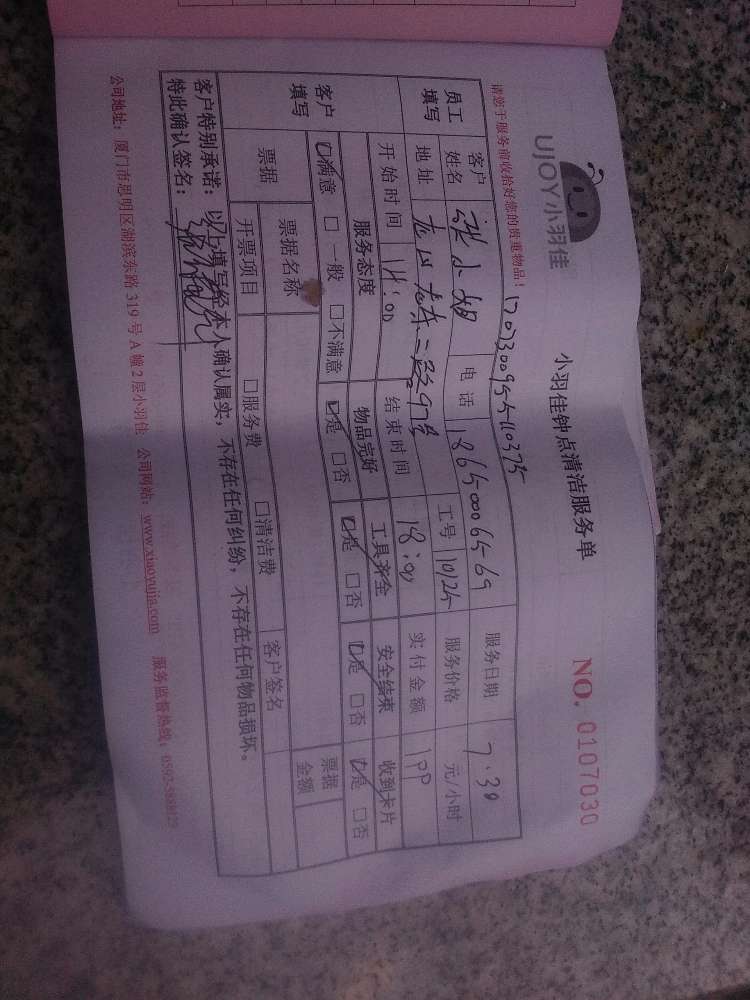 UJOY小羽佳
小羽佳钟点清洁服务单
NO. 0107030
请您于服务前收拾好您的贵重物品！
员工填写 客户姓名 张小姐 电话 18650006569 服务日期 7.30
地址 工号 10125 服务价格 元/小时
开始时间 14:00 结束时间 18:00 实付金额
客户填写 服务态度 物品完好 工具齐全 安全结束 收到卡片
☑满意 □一般 □不满意 ☑是 □否 ☑是 □否 ☑是 □否 ☑是 □否
票据 票据名称 票据金额
开票项目 □服务费 □清洁费 客户签名
客户特别承诺：以上填写经本人确认属实，不存在任何纠纷，不存在任何物品损坏。
特此确认签名：
公司地址：厦门市思明区湖滨东路319号A幢2层小羽佳 公司网站：www.xiaoyujia.com 服务监督热线：